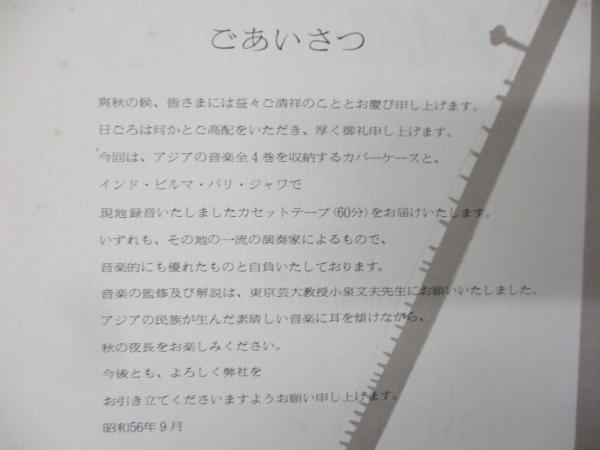 ごあいさつ
爽秋の候、皆さまには益々ご清祥のこととお慶び申し上げます。
日ごろは何かとご高配をいただき、厚く御礼申し上げます。
今回は、アジアの音楽全4巻を収納するカバーケースと、
インド・ビルマ・バリ・ジャワで
現地録音いたしましたカセットテープ(60分)をお届けいたします。
いずれも、その地の一流の演奏家によるもので、
音楽的にも優れたものと自負いたしております。
音楽の監修及び解説は、東京芸大教授小泉文夫先生にお願いいたしました。
アジアの民族が生んだ素晴しい音楽に耳を傾けながら、
秋の夜長をお楽しみください。
今後とも、よろしく弊社を
お引き立てくださいますようお願い申し上げます。
昭和56年9月